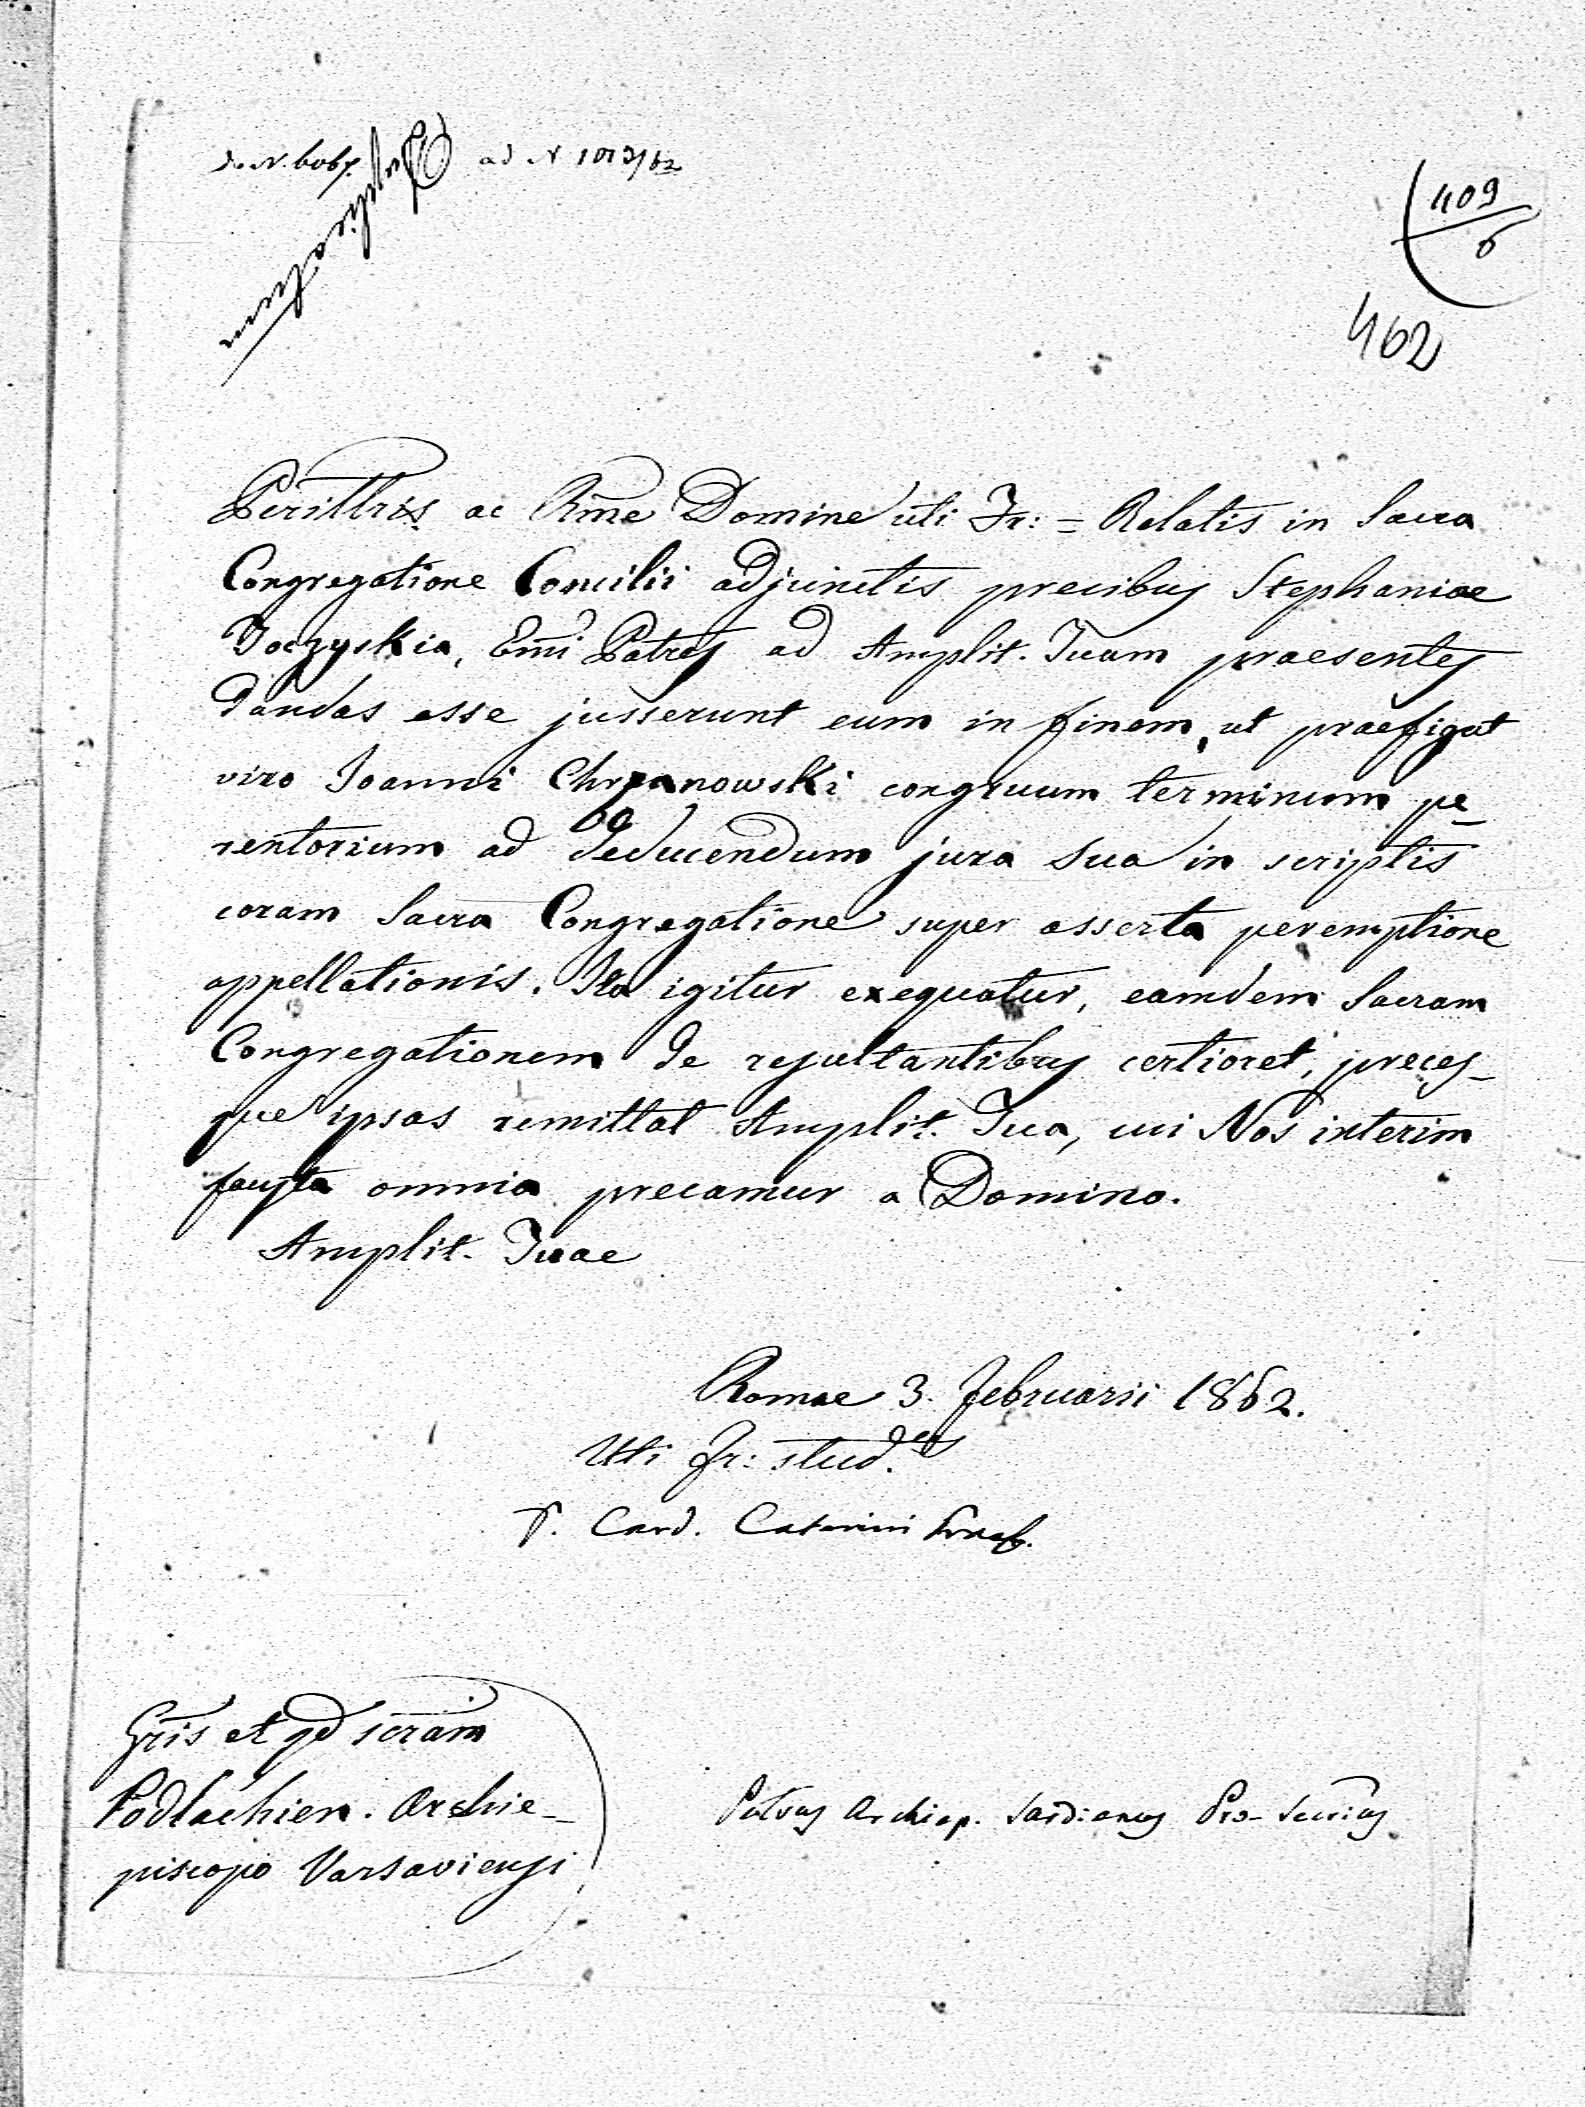 ad N 1013/62
Duplicatum
409
6
462
Perillris ac Rme Domine uti Fr: = Relatis in Sacra
Congregatione Concilii adjunctis precibus Stephaniae
Joczyskia, Emi Patres ad Amplit. Tuam praesentes
dandas esse jusserunt eum in finem, ut praefigat
viro Joanni Chrzanowski congruum terminum pe-
rentorium ad deducendum jura sua in scriptis
coram Sacra Congregatione super asserta peremptione
appellationis. Ita igitur exequatur, eamdem Sacram
Congregationem de resultantibus certioret, preces-
que ipsas remittat Amplit. Tua, cui Nos interim
fausta omnia precamur a Domino.
Amplit. Tuae
Romae 3. Februarii 1862.
Uti Fr: stud.
P. Card. Caterini Praef.
Gris et qd scram
Podlachien. Archie-
piscopo Varsaviensi
Petrus Archiep. Sardianus Pro-Secrius